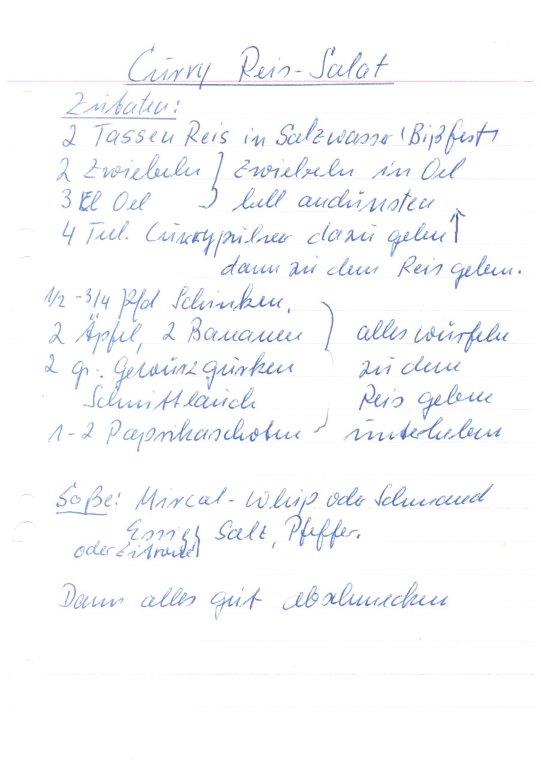 Curry Reis-Salat
Zutaten:
2 Tassen Reis in Salzwasser (Bißfest)
2 Zwiebeln } Zwiebeln in Oel
3 El Oel } hell andünsten
4 Teel. Currypulver dazu geben ↑
dann zu dem Reis geben.
1/2 - 3/4 Pfd Schinken,
2 Äpfel, 2 Bananen } alles würfeln
2 gr. Gewürzgurken zu dem
Schnittlauch Reis geben
1-2 Paprikaschoten unterheben
Soße: Mircal-Whip oder Schmand
Essig } Salz, Pfeffer.
oder Zitrone }
Dann alles gut abschmecken